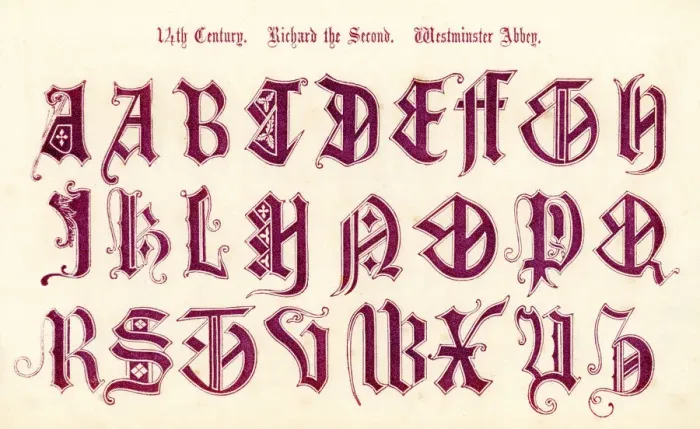 14th Century. Richard the Second. Westminster Abbey.
A A B C D E F G H
I K L M N O P Q
R S T V W X Y Z